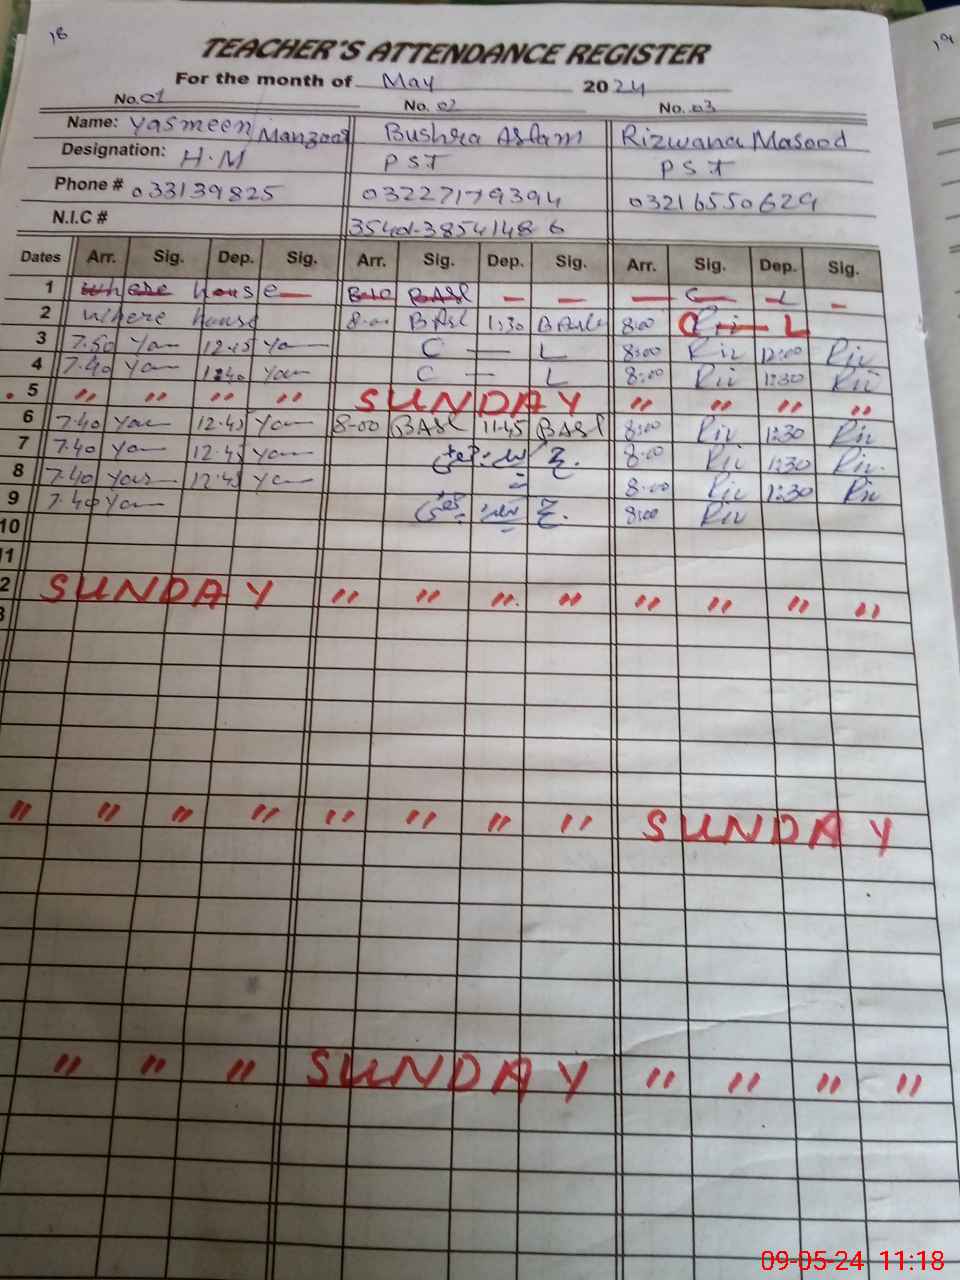 18
19
TEACHER'S ATTENDANCE REGISTER
For the month of May 2024
No. 01 No. 02 No. 03
Name: Yasmeen Manzoor Bushra Aslam Rizwana Masood
Designation: H.M PST PST
Phone # 033139825 03227179394 03216550629
N.I.C #
Dates Arr. Sig. Dep. Sig. Arr. Sig. Dep. Sig. Arr. Sig. Dep. Sig.
1 where house — — — — — C — L —
2 where house 8-00 BASL 1:30 8:00 Riz C — L
3 7.50 Yas 12:15 Yas C — L 8:00 Riz 12:00 Riz
4 7.40 Yas Yas C — L 8:00 Riz 1:30 Riz
5 " " " " SUNDAY " " " "
6 7.40 Yas 12.45 Yas 8-00 BASL 11.45 BASL 8:00 Riz 1:30 Riz
7 7.40 Yas 12.45 Yas 8:00 Riz 1:30 Riz
8 7.40 Yas 12.45 Yas 8:00 Riz 1:30 Riz
9 7.40 Yas 8:00 Riz
10
11
2 SUNDAY " " " " " " " "
" " " " " " " " SUNDAY
" " " SUNDAY " " " "
09-05-24 11:18